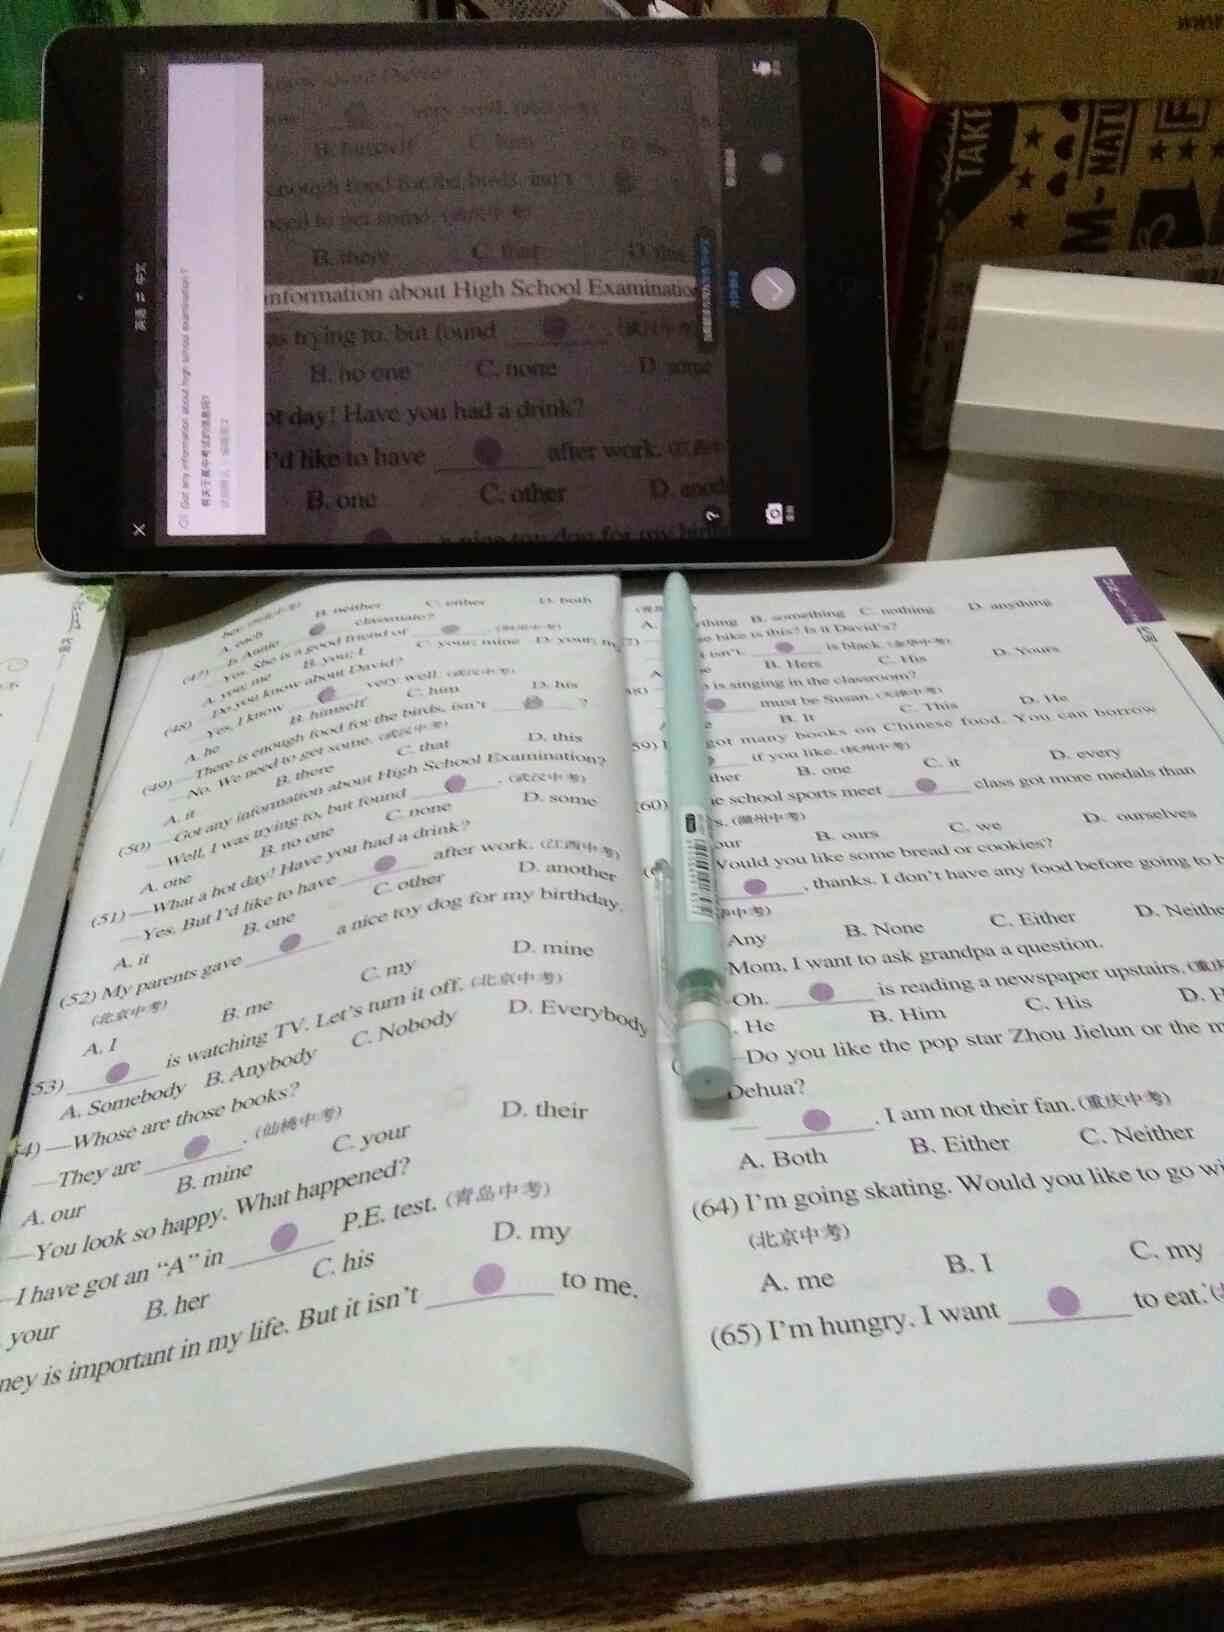 TAKE
M-
NATU
英语 ⇄ 中文
Got any information about high school examination?
有关于高中考试的信息吗?
very well.
B. himself C. him
enough food for the birds, isn't
need to get some.
B. there C. that D. this
information about High School Examination
as trying to, but found
B. no one C. none D. some
ot day! Have you had a drink?
I'd like to have after work.
B. one C. other
a nice toy dog for my birth
her. B. neither C. either D. both
A. each
(47) —Is Annie classmate?
—Yes. She is a good friend of
A. you; me B. you; I C. your; mine D. your; my
(48) —Do you know about David?
—Yes, I know very well. (武汉中考)
A. he B. himself C. him D. his
(49) —There is enough food for the birds, isn't ?
—No. We need to get some. (武汉中考)
A. it B. there C. that D. this
(50) —Got any information about High School Examination?
—Well, I was trying to, but found . (武汉中考)
A. one B. no one C. none D. some
(51) —What a hot day! Have you had a drink?
—Yes. But I'd like to have after work. (江西中考)
A. it B. one C. other D. another
(52) My parents gave a nice toy dog for my birthday.
(北京中考)
A. I B. me C. my D. mine
53) is watching TV. Let's turn it off. (北京中考)
A. Somebody B. Anybody C. Nobody D. Everybody
54) —Whose are those books?
—They are . (仙桃中考)
A. our B. mine C. your D. their
—You look so happy. What happened?
—I have got an “A” in P.E. test. (青岛中考)
your B. her C. his D. my
ney is important in my life. But it isn't to me.
A. thing B. something C. nothing D. anything
se bike is this? Is it David's?
isn't. is black. (金华中考)
B. Hers C. His D. Yours
is singing in the classroom?
must be Susan. (天津中考)
B. It C. This D. He
59) I got many books on Chinese food. You can borrow
if you like. (杭州中考)
ther B. one C. it D. every
(60) e school sports meet class got more medals than
s. (湖州中考)
our B. ours C. we D. ourselves
Would you like some bread or cookies?
, thanks. I don't have any food before going to b
中考)
Any B. None C. Either D. Neithe
Mom, I want to ask grandpa a question.
Oh. is reading a newspaper upstairs. (重庆
. He B. Him C. His D. H
—Do you like the pop star Zhou Jielun or the m
Dehua?
— . I am not their fan. (重庆中考)
A. Both B. Either C. Neither
(64) I'm going skating. Would you like to go wi
(北京中考)
A. me B. I C. my
(65) I'm hungry. I want to eat. (